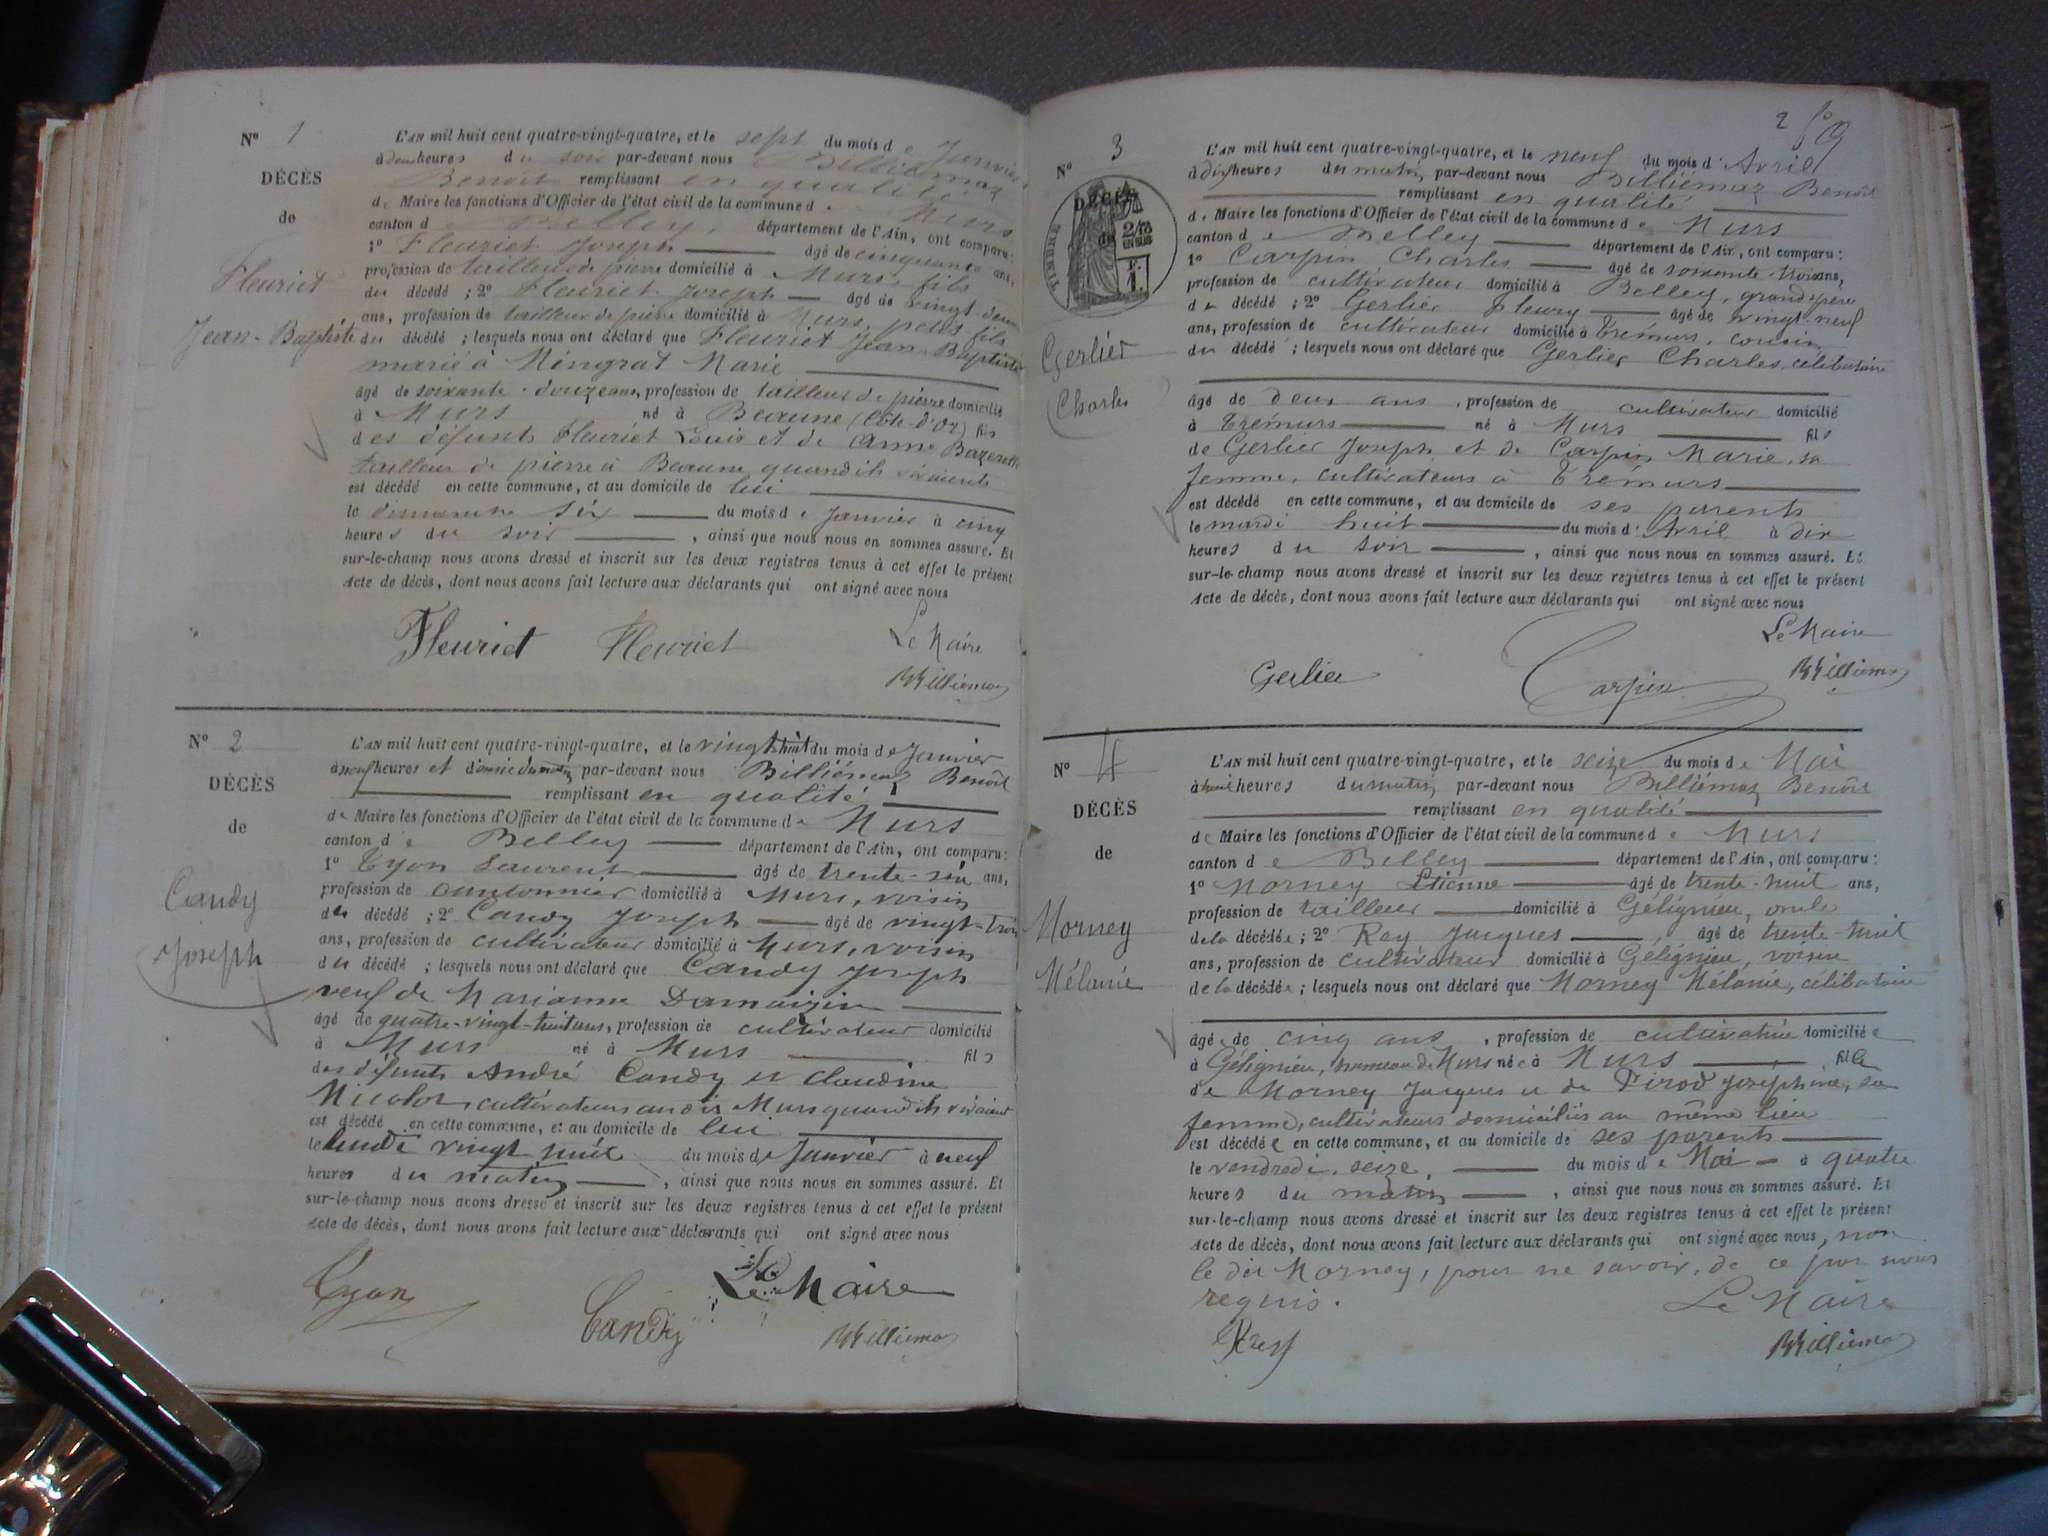 N° 1
DÉCÈS
de
Fleuriet
Jean-Baptiste
L'AN mil huit cent quatre-vingt-quatre, et le sept du mois de Janvier
à deux heures du soir par-devant nous Billiémaz
Benoît remplissant en qualité
de Maire les fonctions d'Officier de l'état civil de la commune de Murs
canton de Belley, département de l'Ain, ont comparu :
1° Fleuriet Joseph âgé de cinquante ans,
profession de tailleur de pierre domicilié à Murs, fils
du décédé ; 2° Fleuriet Joseph âgé de vingt-deux
ans, profession de tailleur de pierre domicilié à Murs, petit fils
du décédé ; lesquels nous ont déclaré que Fleuriet Jean-Baptiste
marié à Mingrat Marie
âgé de soixante-douze ans, profession de tailleur de pierre domicilié
à Murs né à Beaune (Côte-d'Or) fils
des défunts Fleuriet Louis et de Anne
tailleur de pierre à Beaune quand ils vivaient
est décédé en cette commune, et au domicile de lui
le dimanche six du mois de Janvier à cinq
heures du soir, ainsi que nous nous en sommes assuré. Et
sur-le-champ nous avons dressé et inscrit sur les deux registres tenus à cet effet le présent
Acte de décès, dont nous avons fait lecture aux déclarants qui ont signé avec nous
Fleuriet Fleuriet Le Maire
BBilliémaz
N° 2
DÉCÈS
de
Candy
Joseph
L'AN mil huit cent quatre-vingt-quatre, et le vingt-huit du mois de Janvier
à neuf heures et demie du matin par-devant nous Billiémaz Benoît
remplissant en qualité
de Maire les fonctions d'Officier de l'état civil de la commune de Murs
canton de Belley département de l'Ain, ont comparu :
1° Tyon Laurent âgé de trente-six ans,
profession de cantonnier domicilié à Murs, voisin
du décédé ; 2° Candy Joseph âgé de vingt-trois
ans, profession de cultivateur domicilié à Murs, voisin
du décédé ; lesquels nous ont déclaré que Candy Joseph
veuf de Marianne Damaizin
âgé de quatre-vingt-huit ans, profession de cultivateur domicilié
à Murs né à Murs fils
des défunts André Candy et Claudine
Nicolot, cultivateurs audit Murs quand ils vivaient
est décédé en cette commune, et au domicile de lui
le lundi vingt huit du mois de Janvier à neuf
heures du matin, ainsi que nous nous en sommes assuré. Et
sur-le-champ nous avons dressé et inscrit sur les deux registres tenus à cet effet le présent
Acte de décès, dont nous avons fait lecture aux déclarants qui ont signé avec nous
Tyon Candy Le Maire
BBilliémaz
2
N° 3
DÉCÈS
de
TIMBRE
2/10
EN SUS
F.
1.
Gerlier
Charles
L'AN mil huit cent quatre-vingt-quatre, et le neuf du mois d'Avril
à dix heures du matin, par-devant nous Billiémaz Benoît
remplissant en qualité
de Maire les fonctions d'Officier de l'état civil de la commune de Murs
canton de Belley département de l'Ain, ont comparu :
1° Carpin Charles âgé de soixante-trois ans,
profession de cultivateur domicilié à Belley, grand père
du décédé ; 2° Gerlier Fleury âgé de vingt-neuf
ans, profession de cultivateur domicilié à Trémurs, cousin
du décédé ; lesquels nous ont déclaré que Gerlier Charles, célibataire
âgé de deux ans, profession de cultivateur domicilié
à Trémurs né à Murs fils
de Gerlier Joseph et de Carpin Marie, sa
femme, cultivateurs à Trémurs
est décédé en cette commune, et au domicile de ses parents
le mardi huit du mois d'Avril à dix
heures du soir, ainsi que nous nous en sommes assuré. Et
sur-le-champ nous avons dressé et inscrit sur les deux registres tenus à cet effet le présent
Acte de décès, dont nous avons fait lecture aux déclarants qui ont signé avec nous
Gerlier Carpin Le Maire
BBilliémaz
N° 4
DÉCÈS
de
Morney
Mélanie
L'AN mil huit cent quatre-vingt-quatre, et le seize du mois de Mai
à huit heures du matin, par-devant nous Billiémaz Benoît
remplissant en qualité
de Maire les fonctions d'Officier de l'état civil de la commune de Murs
canton de Belley département de l'Ain, ont comparu :
1° Morney Etienne âgé de trente-huit ans,
profession de tailleur domicilié à Gélignieu, oncle
de la décédée ; 2° Rey Jacques âgé de trente-huit
ans, profession de cultivateur domicilié à Gélignieu, voisin
de la décédée ; lesquels nous ont déclaré que Morney Mélanie, célibataire
âgée de cinq ans, profession de cultivatrice domiciliée
à Gélignieu, hameau de Murs née à Murs fille
de Morney Jacques et de Joséphine, sa
femme, cultivateurs domiciliés au même lieu
est décédée en cette commune, et au domicile de ses parents
le vendredi, seize, du mois de Mai à quatre
heures du matin, ainsi que nous nous en sommes assuré. Et
sur-le-champ nous avons dressé et inscrit sur les deux registres tenus à cet effet le présent
Acte de décès, dont nous avons fait lecture aux déclarants qui ont signé avec nous, non
le dit Morney, pour ne savoir, de ce par nous
requis. Le Maire
Rey BBilliémaz